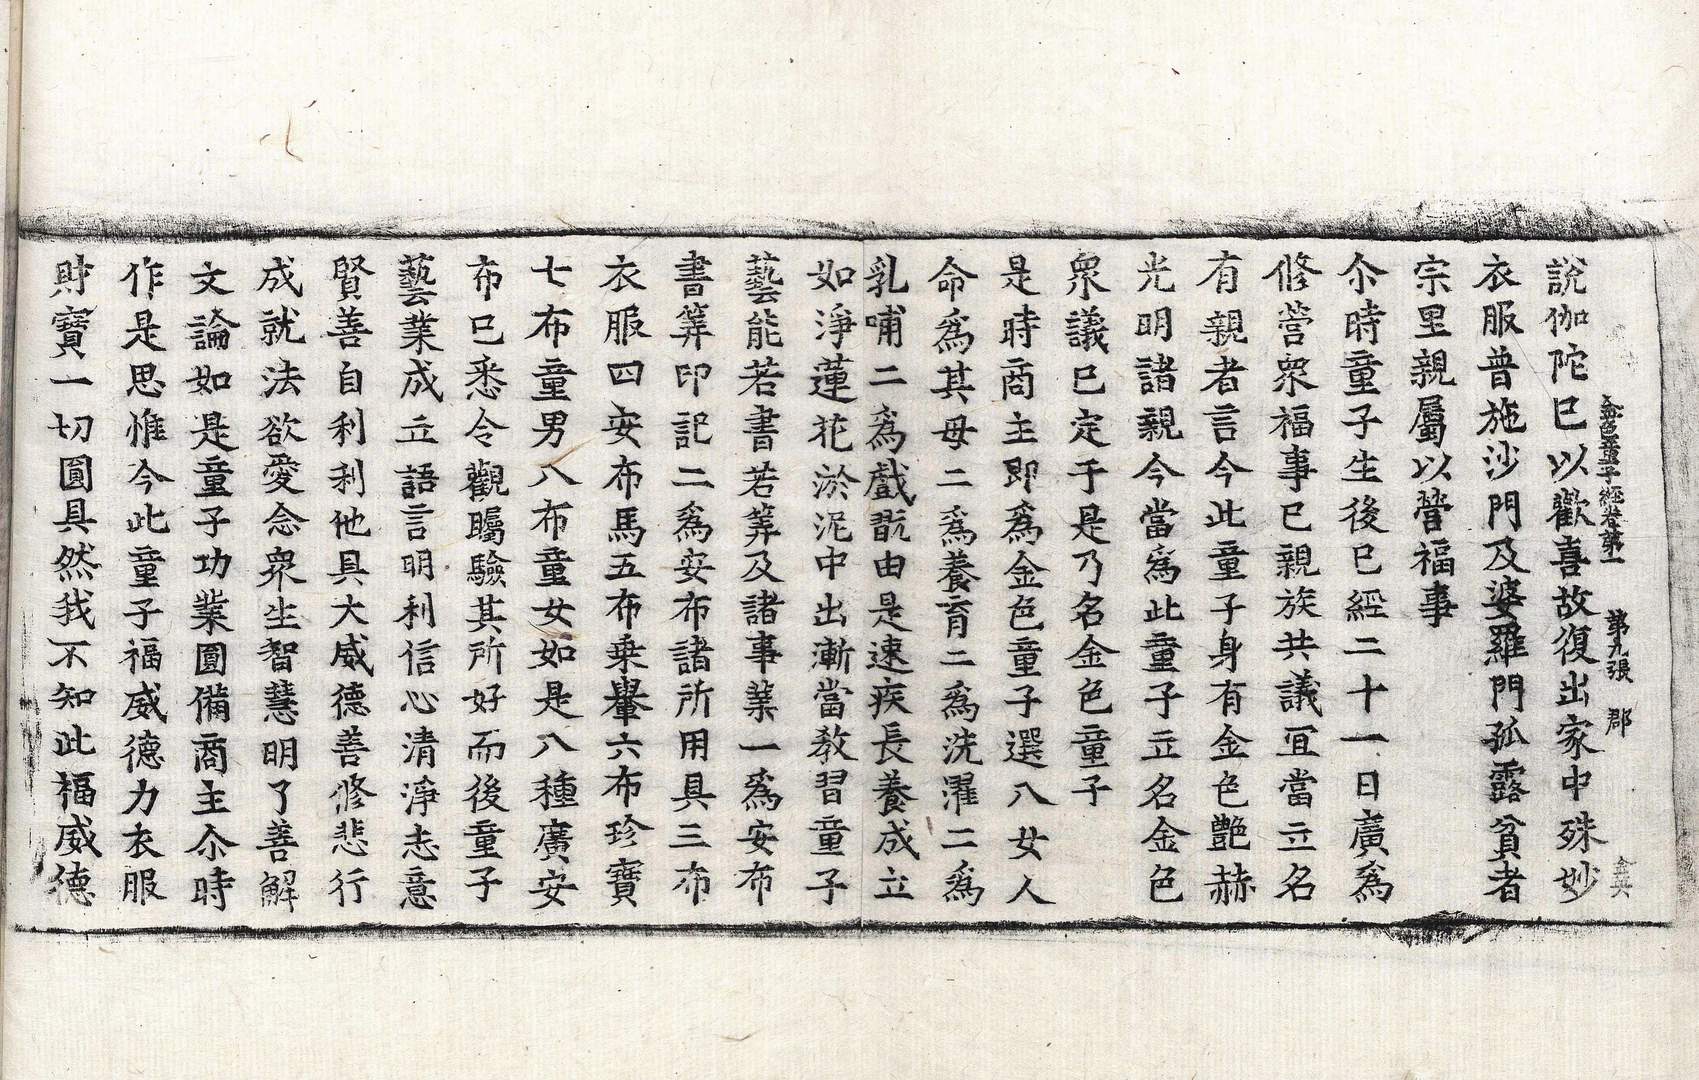 金色童子經卷第一　第九張　郡
說伽陀已以歡喜故復出家中殊妙
衣服普施沙門及婆羅門孤露貧者
宗里親屬以營福事
尒時童子生後已經二十一日廣爲
修營衆福事已親族共議冝當立名
有親者言今此童子身有金色艶赫
光明諸親今當爲此童子立名金色
衆議已定于是乃名金色童子
是時商主即爲金色童子選八女人
命爲其母二爲養育二爲洗濯二爲
乳哺二爲戲翫由是速疾長養成立
如淨蓮花淤泥中出漸當教習童子
藝能若書若筭及諸事業一爲安布
書筭印記二爲安布諸所用具三布
衣服四安布馬五布乗轝六布珍寶
七布童男八布童女如是八種廣安
布已悉令觀矚驗其所好而後童子
藝業成立語言明利信心清淨志意
賢善自利利他具大威德善修悲行
成就法欲愛念衆生智慧明了善解
文論如是童子功業圓備商主尒時
作是思惟今此童子福威德力衣服
財寶一切圓具然我不知此福威德